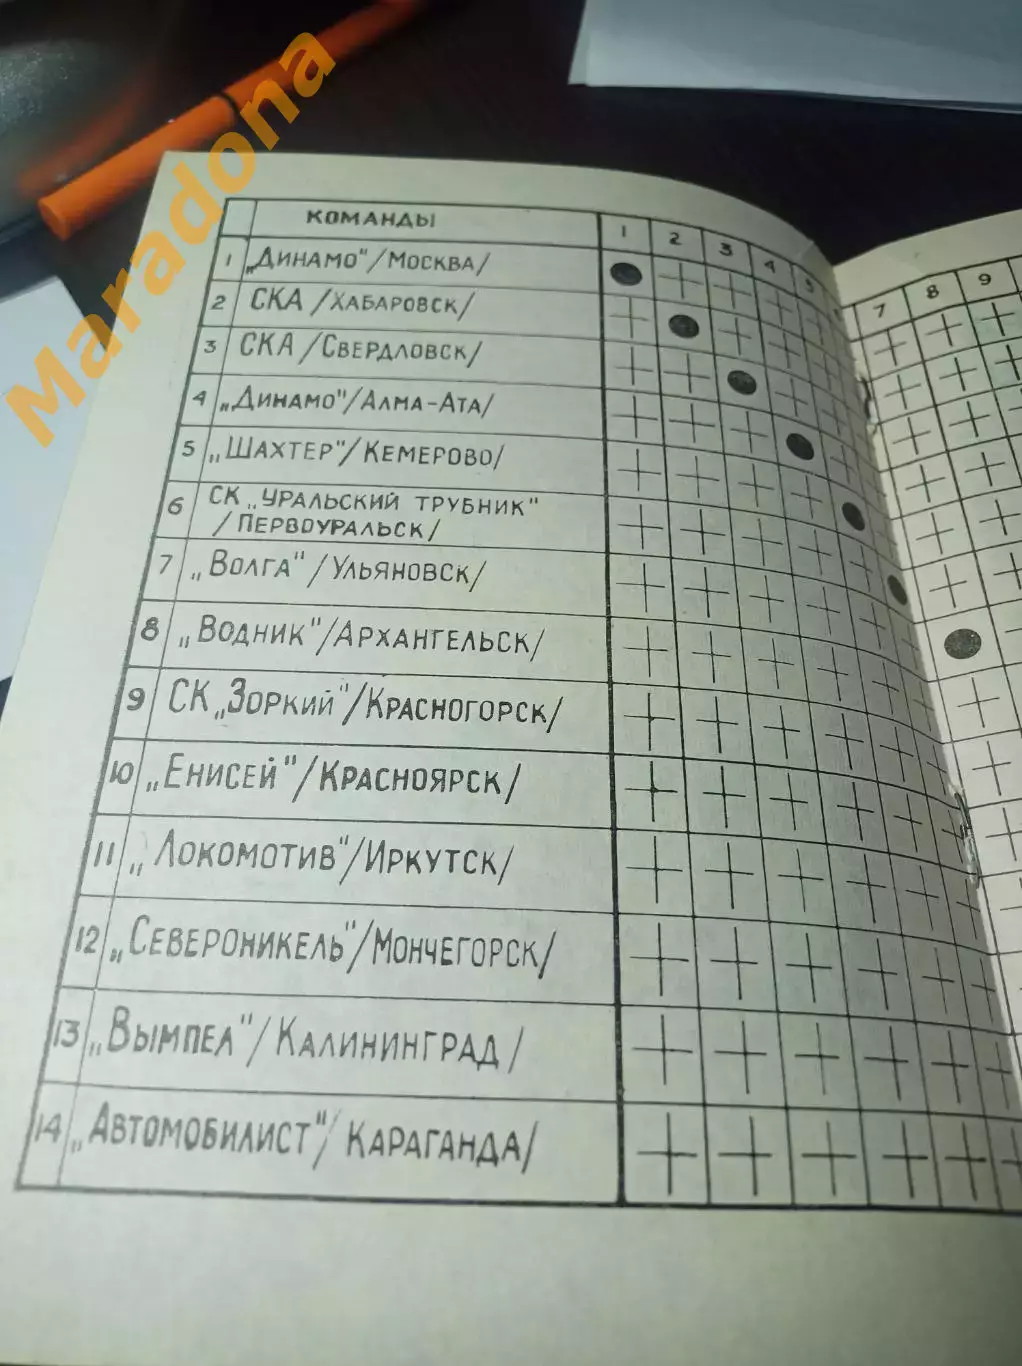 Maradona
КОМАНДЫ 1 2 3 4 5 7 8 9
1 „Динамо"/Москва/
2 СКА /Хабаровск/
3 СКА /Свердловск/
4 „Динамо"/Алма-Ата/
5 „Шахтер"/Кемерово/
6 СК „Уральский трубник"
/Первоуральск/
7 „Волга"/Ульяновск/
8 „Водник"/Архангельск/
9 СК „Зоркий"/Красногорск/
10 „Енисей"/Красноярск/
11 „Локомотив"/Иркутск/
12 „Североникель"/Мончегорск/
13 „Вымпел"/Калининград/
14 „Автомобилист"/Караганда/